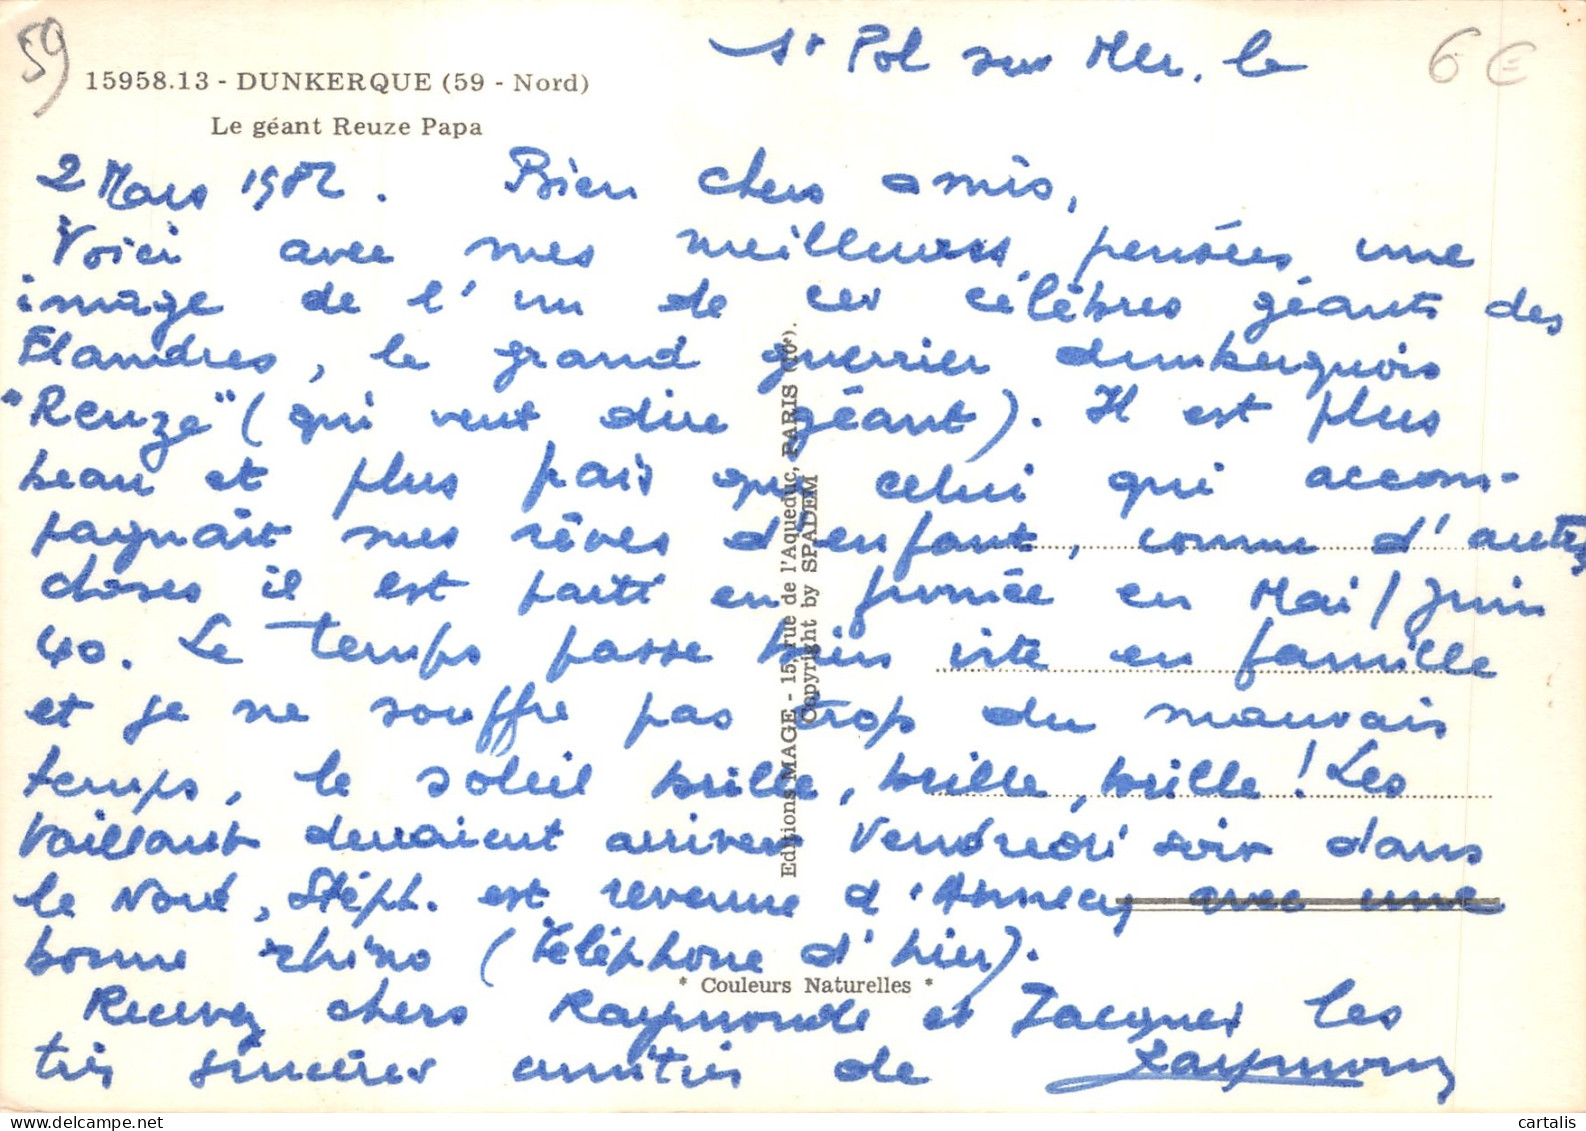 59
15958.13 - DUNKERQUE (59 - Nord)
Le géant Reuze Papa
6 €
St Pol sur Mer, le
2 Mars 1982. Bien chers amis,
Voici avec mes meilleures pensées, une
image de l'un de ces célèbres géants des
Flandres, le grand guerrier dunkerquois
"Reuze" (qui veut dire géant). Il est plus
beau et plus pais que celui qui accom-
pagnait mes rêves d'enfant, comme d'autres
choses il est parti en fumée en Mai/Juin
40. Le temps passe bien vite en famille
et je ne souffre pas trop du mauvais
temps, le soleil brille, brille, brille! Les
Vaillant devaient arriver Vendredi soir dans
le Nord, Stéph. est revenue d'Annecy avec une
bonne rhino (téléphone d'hier).
Recevez chers Raymonde et Jacques les
très sincères amitiés de Raymond
Editions MAGE - 15, rue de l'Aqueduc, PARIS (10e).
Copyright by SPADEM
* Couleurs Naturelles *
cartalis